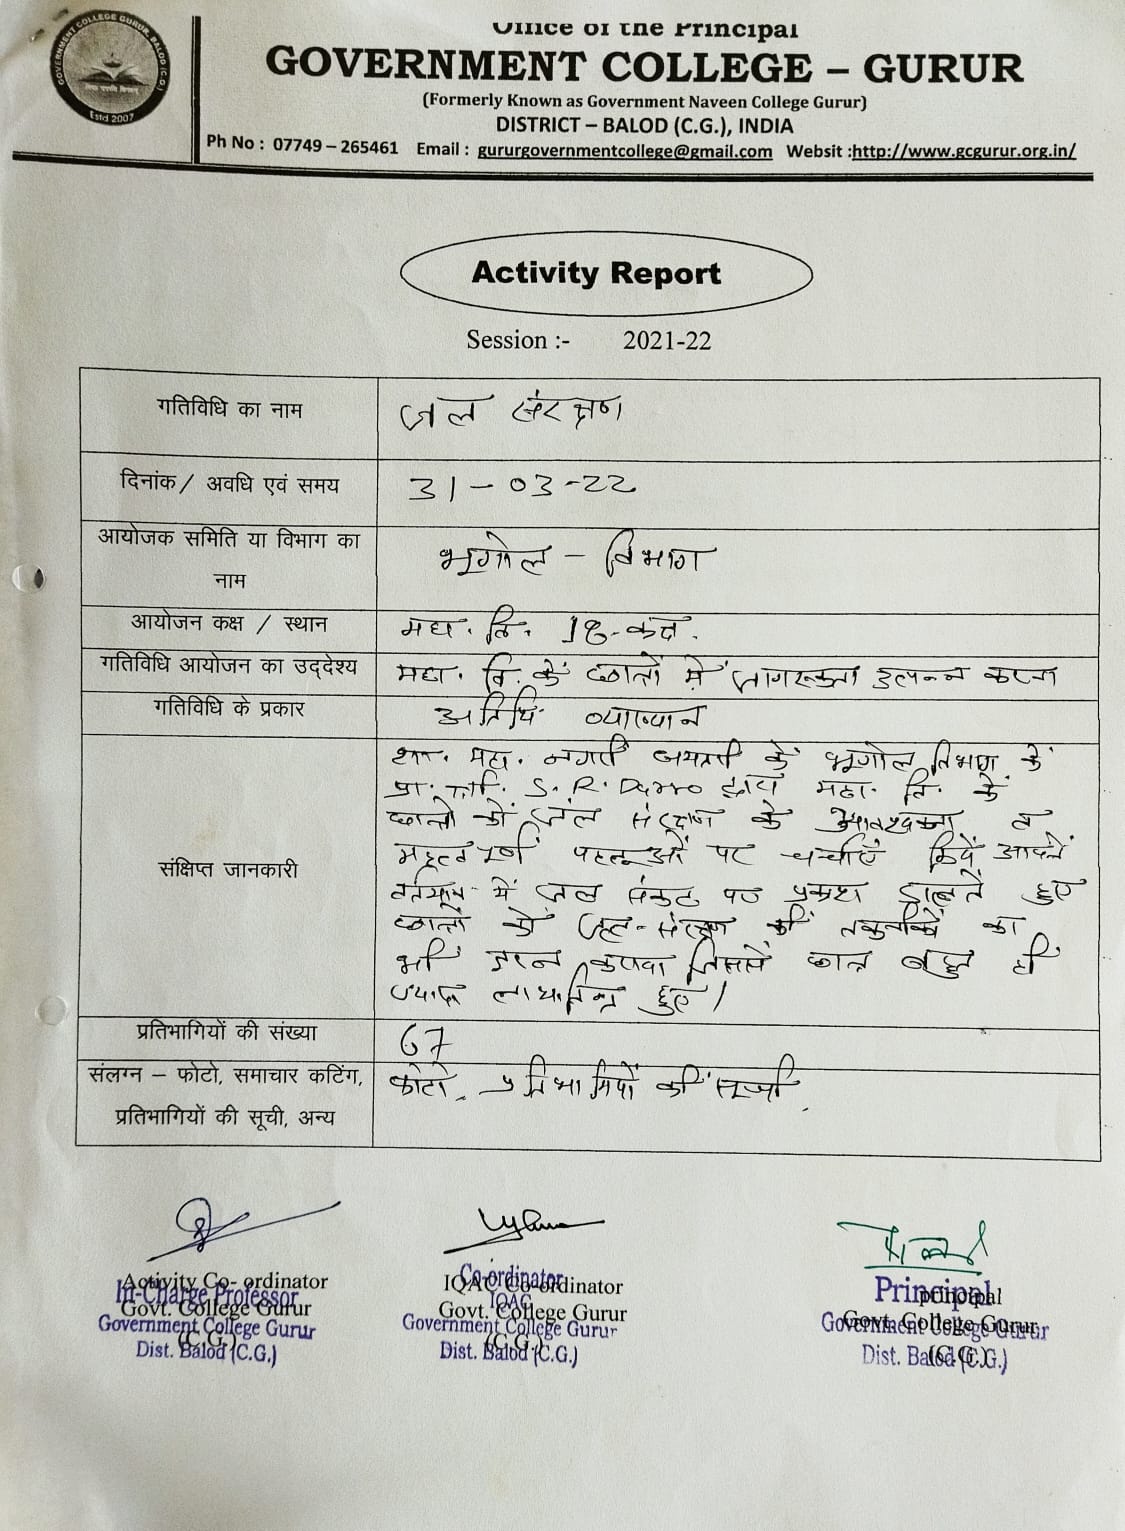 GOVERNMENT COLLEGE GURUR, BALOD (C.G.)
Estd 2007
Office of the Principal
GOVERNMENT COLLEGE – GURUR
(Formerly Known as Government Naveen College Gurur)
DISTRICT – BALOD (C.G.), INDIA
Ph No : 07749 – 265461 Email : gururgovernmentcollege@gmail.com Websit :http://www.gcgurur.org.in/
Activity Report
Session :- 2021-22
गतिविधि का नाम
जल संरक्षण
दिनांक/ अवधि एवं समय
31-03-22
आयोजक समिति या विभाग का
नाम
भूगोल – विभाग
आयोजन कक्ष / स्थान
महा. वि. 18-कक्ष.
गतिविधि आयोजन का उद्देश्य
महा. वि. के छात्रों में जागरूकता उत्पन्न करना
गतिविधि के प्रकार
अतिथि व्याख्यान
संक्षिप्त जानकारी
शा. महा. नगरी के भूगोल विभाग के
S. R. द्वारा महा. वि. के
छात्रों को जल संरक्षण के आवश्यकता व
महत्वपूर्ण पहलूओं पर चर्चाएं किये आपने
वर्तमान में जल संकट पर प्रकाश डालते हुए
छात्रों को जल-संरक्षण की तकनीकों का
भी ज्ञान कराया जिससे छात्र बहुत ही
ज्यादा लाभान्वित हुए।
प्रतिभागियों की संख्या
67
संलग्न – फोटो, समाचार कटिंग,
प्रतिभागियों की सूची, अन्य
फोटो, प्रतिभागियों की सूची.
Activity Co- ordinator
Govt. College Gurur
(C.G.)
In-Charge Professor
Government College Gurur
Dist. Balod (C.G.)
IQAC Co-ordinator
Govt. College Gurur
(C.G.)
Co-ordinator
IQAC
Government College Gurur
Dist. Balod (C.G.)
principal
Govt. College Gurur
(C.G.)
Principal
Government College Gurur
Dist. Balod (C.G.)